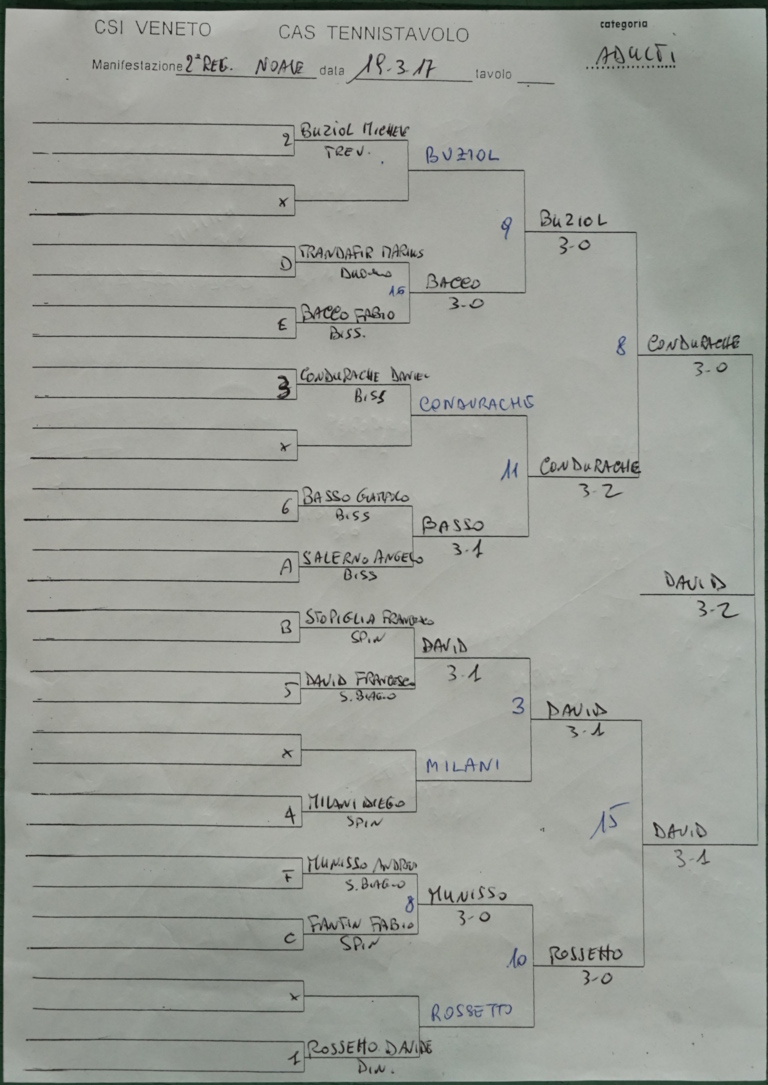 CSI VENETO CAS TENNISTAVOLO categoria
Manifestazione 2ª REG. NOALE data 19.3.17 tavolo
ADULTI
2 BUZIOL MICHELE
TREV.
BUZIOL
x
9 BUZIOL
3-0
D TRANDAFIR MARIUS
15 BACCO
3-0
E BACCO FABIO
BISS.
8 CONDURACHE
3-0
3 CONDURACHE DANIEL
BISS
CONDURACHE
x
11 CONDURACHE
3-2
6 BASSO
BISS
BASSO
3-1
A SALERNO ANGELO
BISS
DAVID
3-2
B STOPIGLIA FRANCESCO
SPIN
DAVID
3-1
5 DAVID FRANCESCO
S. BIAGIO
3 DAVID
3-1
x
MILANI
4 MILANI DIEGO
SPIN
15 DAVID
3-1
F MUNISSO ANDREA
S. BIAGIO
8 MUNISSO
3-0
C FANTIN FABIO
SPIN
10 ROSSETTO
3-0
x
ROSSETTO
1 ROSSETTO DAVIDE
DIN.